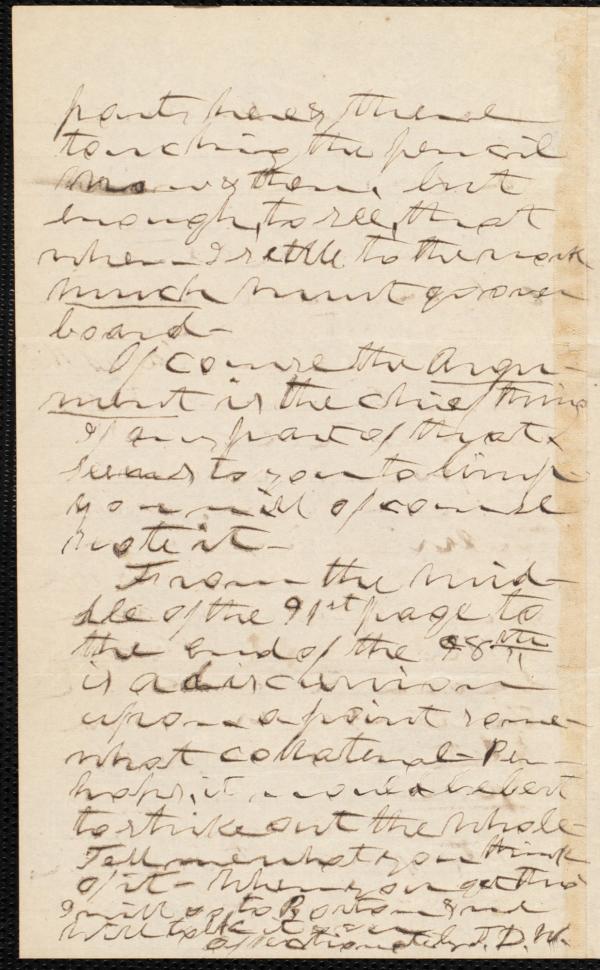 parts here & there
touching the pencil
now & then, but
enough, to see, that
when I settle to the work
much must go over
board—
Of course the Argu-
ment is the chief thing
If any part of that
seems to you to limp
you will of course
note it—
From the mid-
dle of the 91st page to
the end of the 98th
is a discussion
upon a point some-
what collateral— Per-
haps, it would be best
to strike out the whole—
Tell me what you think
of it— When you get this
I will go to Boston & we
will talk it over
affectionately J. D. W.